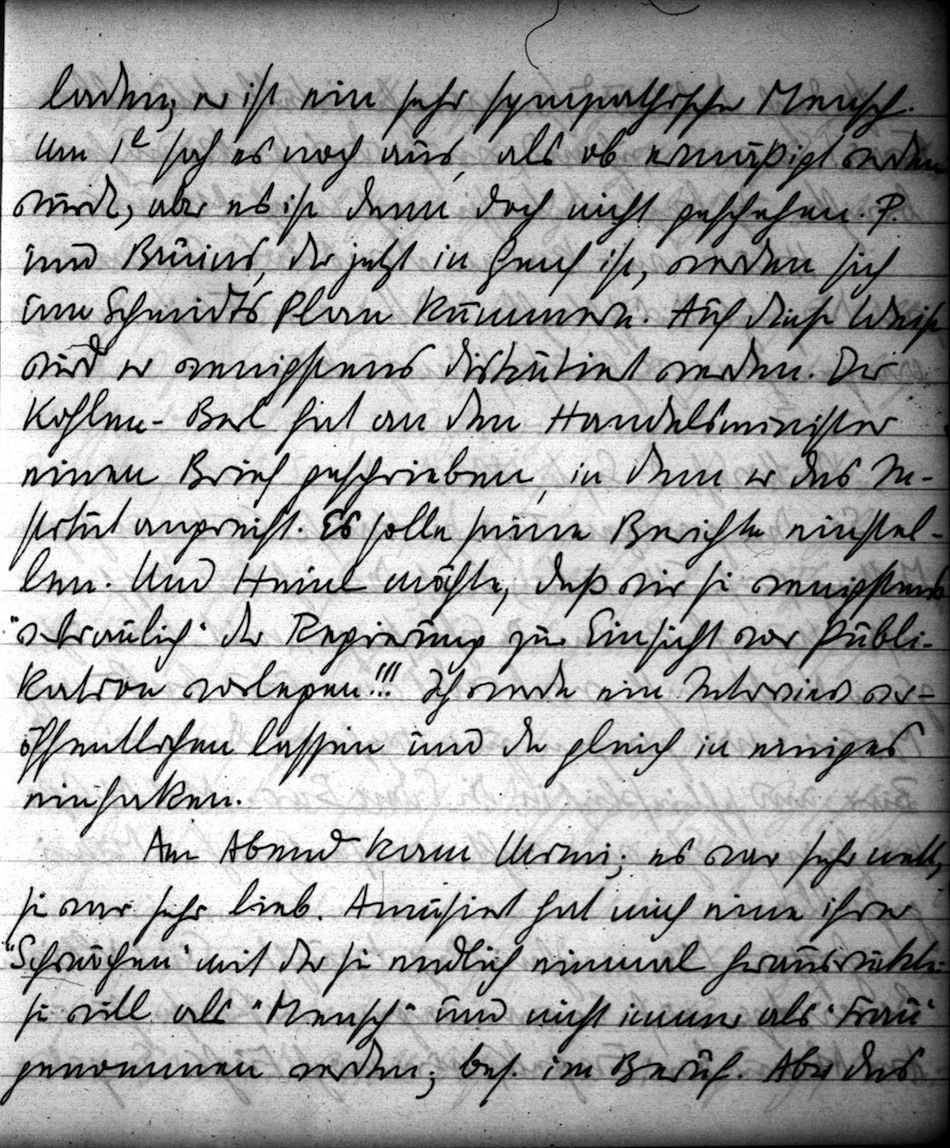 laden; er ist ein sehr sympathischer Mensch.
Um 1ʰ sah es noch aus, als ob ermäßigt werden
würde, aber es ist dann doch nicht geschehen. P.
und Bruins, der jetzt in Genf ist, werden sich
um Schmidts Plan kümmern. Auf diese Weise
wird er wenigstens diskutiert werden. Der
Kohlen- hat an den Handelsminister
einen Brief geschrieben, in dem er das In-
stitut angreift. Es solle seine Berichte einstel-
len. Und möchte, daß wir sie wenigstens
"vertraulich" der Regierung zur Einsicht vor Publi-
kation vorlegen!!! Ich werde ein Interview ver-
öffentlichen lassen und da gleich in einiges
einhaken.
Am Abend kam; es war sehr nett,
sie war sehr lieb. Amüsiert hat mich eine ihrer
"Schwächen" mit der sie endlich einmal herausrückte:
sie will als "Mensch" und nicht immer als "Frau"
genommen werden; bes. im Beruf. Aber das